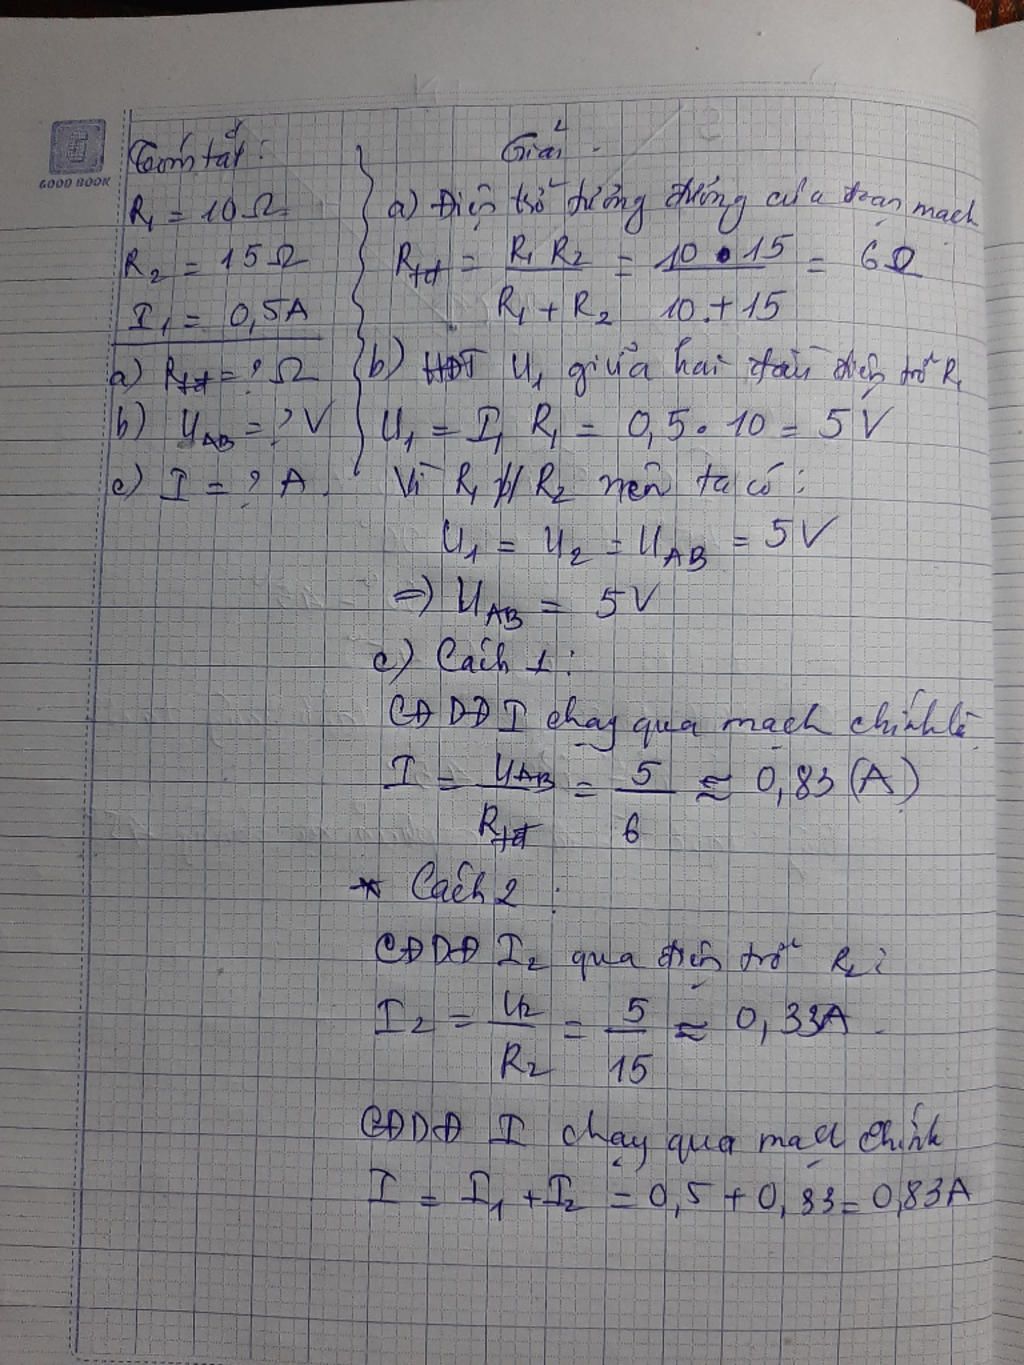 GOOD BOOK
Tóm tắt:
R₁ = 10Ω
R₂ = 15Ω
I₁ = 0,5A
a) Rtđ = ? Ω
b) U_AB = ? V
c) I = ? A.
Giải.
a) Điện trở tương đương của đoạn mạch
Rtđ = R₁ R₂ / R₁ + R₂ = 10 . 15 / 10 + 15 = 6Ω
b) HĐT U₁ giữa hai đầu điện trở R₁
U₁ = I₁ R₁ = 0,5 . 10 = 5V
Vì R₁ // R₂ nên ta có:
U₁ = U₂ = U_AB = 5V
=> U_AB = 5V
c) Cách 1:
CĐDĐ I chạy qua mạch chính là
I = U_AB / Rtđ = 5 / 6 ≈ 0,83 (A)
* Cách 2:
CĐDĐ I₂ qua điện trở R₂:
I₂ = U₂ / R₂ = 5 / 15 ≈ 0,33A.
CĐDĐ I chạy qua mạch chính
I = I₁ + I₂ = 0,5 + 0,33 = 0,83A